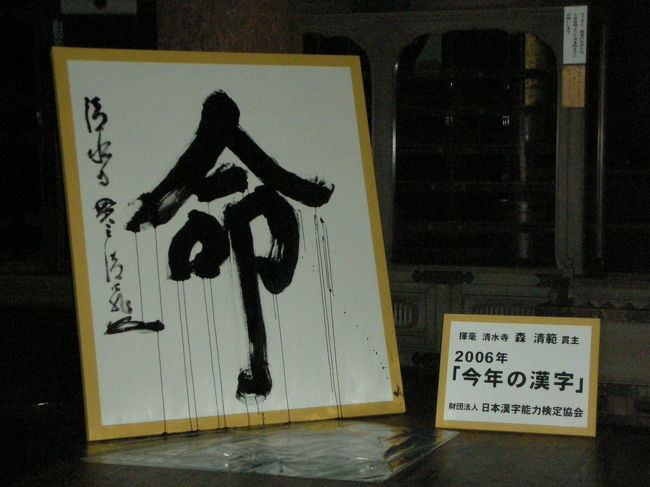 命
清水寺 貫主 清範
揮毫 清水寺 森 清範 貫主
2006年
「今年の漢字」
財団法人 日本漢字能力検定協会